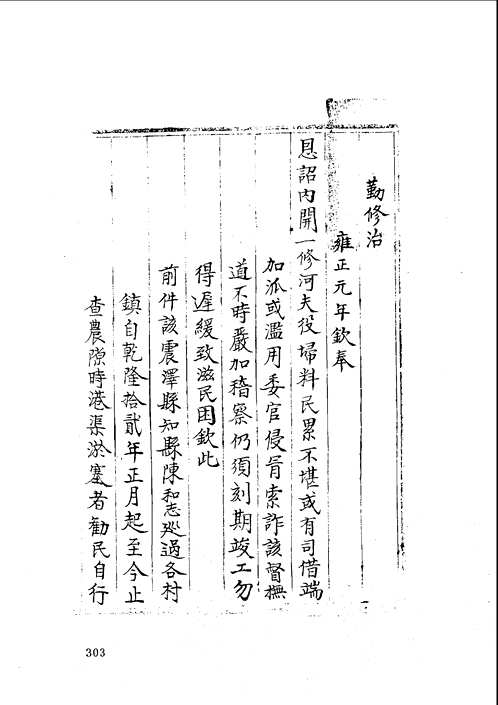 勤修治
雍正元年欽奉
恩詔內開一修河夫役埽料民累不堪或有司借端
加派或濫用委官侵肻索詐該督撫
道不時嚴加稽察仍須刻期竣工勿
得遲緩致滋民困欽此
前件該震澤縣知縣陳和志廵過各村
鎮自乾隆拾貳年正月起至今止
查農隙時港渠淤塞者勸民自行
303